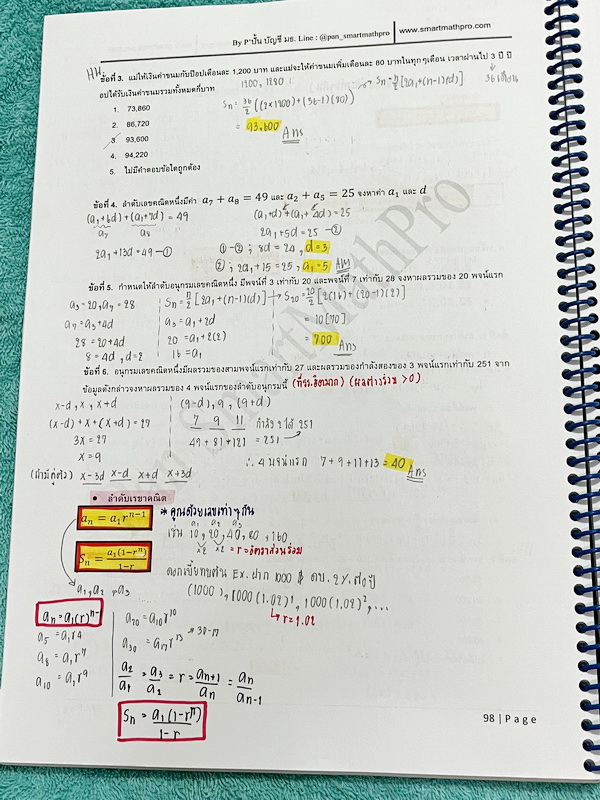 By P'ปั้น บัญชี มธ. Line : @pan_smartmathpro | www.smartmathpro.com
HW
ข้อที่ 3. แม่ให้เงินค่าขนมกับป๊อปเดือนละ 1,200 บาท และแม่จะให้ค่าขนมเพิ่มเดือนละ 80 บาทในทุกๆเดือน เวลาผ่านไป 3 ปี ป๊
อปได้รับเงินค่าขนมรวมทั้งหมดกี่บาท
1200, 1280
36 เดือน
1. 73,860
2. 86,720
3. 93,600
4. 94,220
5. ไม่มีคำตอบข้อใดถูกต้อง
Sn = 36/2 ((2×1200)+(36-1)(80))
Sn = n/2 [2a1+(n-1)(d)]
= 93,600 Ans
ข้อที่ 4. ลำดับเลขคณิตหนึ่งมีค่า a7 + a8 = 49 และ a2 + a5 = 25 จงหาค่า a1 และ d
(a1+6d)+(a1+7d) = 49
a7 a8
2a1+13d = 49 -①
(a1+d)+(a1+4d)=25
2a1+5d = 25 -②
①-② ; 8d = 24, d=3
② ; 2a1+15 = 25, a1=5 Ans
ข้อที่ 5. กำหนดให้ลำดับอนุกรมเลขคณิตหนึ่ง มีพจน์ที่ 3 เท่ากับ 20 และพจน์ที่ 7 เท่ากับ 28 จงหาผลรวมของ 20 พจน์แรก
a3=20, a7=28
a7 = a3+4d
28 = 20+4d
8 = 4d, d=2
Sn = n/2 [2a1+(n-1)(d)]
a3 = a1+2d
20 = a1+2(2)
16 = a1
S20 = 20/2 [2(16)+(20-1)(2)]
= 10[70]
= 700 Ans
ข้อที่ 6. อนุกรมเลขคณิตหนึ่งมีผลรวมของสามพจน์แรกเท่ากับ 27 และผลรวมของกำลังสองของ 3 พจน์แรกเท่ากับ 251 จาก
ข้อมูลดังกล่าวจงหาผลรวมของ 4 พจน์แรกของลำดับอนุกรมนี้ (ผลต่างร่วม > 0)
x-d, x, x+d
(x-d)+x+(x+d) = 27
3x = 27
x = 9
(9-d), 9, (9+d)
7 9 11 กำลัง 2 ได้ 251
49 + 81 + 121 = 251
∴ 4 พจน์แรก 7+9+11+13 = 40 Ans
x-3d x-d x+d x+3d
• ลำดับเรขาคณิต
an = a1r^(n-1)
* คูณด้วยเลขเท่าๆกัน
a1 a2 a3
เช่น 10, 20, 40, 80, 160
×2 ×2 = r = อัตราส่วนร่วม
Sn = a1(1-r^n)/1-r
ดอกเบี้ยทบต้น Ex. ฝาก 1000 ฿ ดบ. 2% ต่อปี
(1000), 1000(1.02)^1, 1000(1.02)^2, ...
r = 1.02
a1, a2, a3
an = a1(r)^(n-1)
a5 = a1r^4
a8 = a1r^7
a10 = a1r^9
a20 = a10r^10
a30 = a17r^13 → 30-17
a2/a1 = a3/a2 = r = an+1/an = an/an-1
Sn = a1(1-r^n)/1-r
98 | Page
SmartMathPro